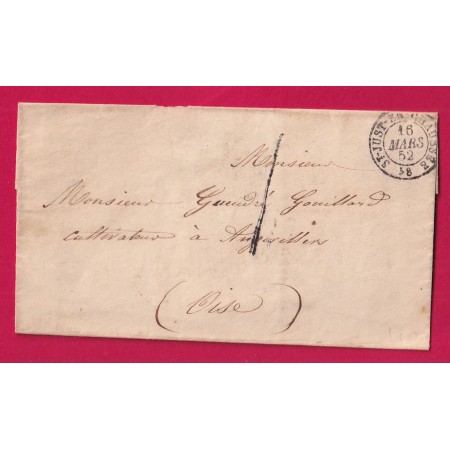 ST-JUST-EN-CHAUSSEE
16
MARS
52
58
Monsieur
Monsieur Gouillard
cultivateur à Angivillers
(Oise)
1